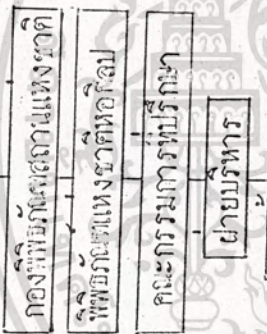 กองพิพิธภัณฑสถานแห่งชาติ
พิพิธภัณฑแหงชาติหอศิลป
คณะกรรมการที่ปรึกษา
ฝ่ายบริหาร